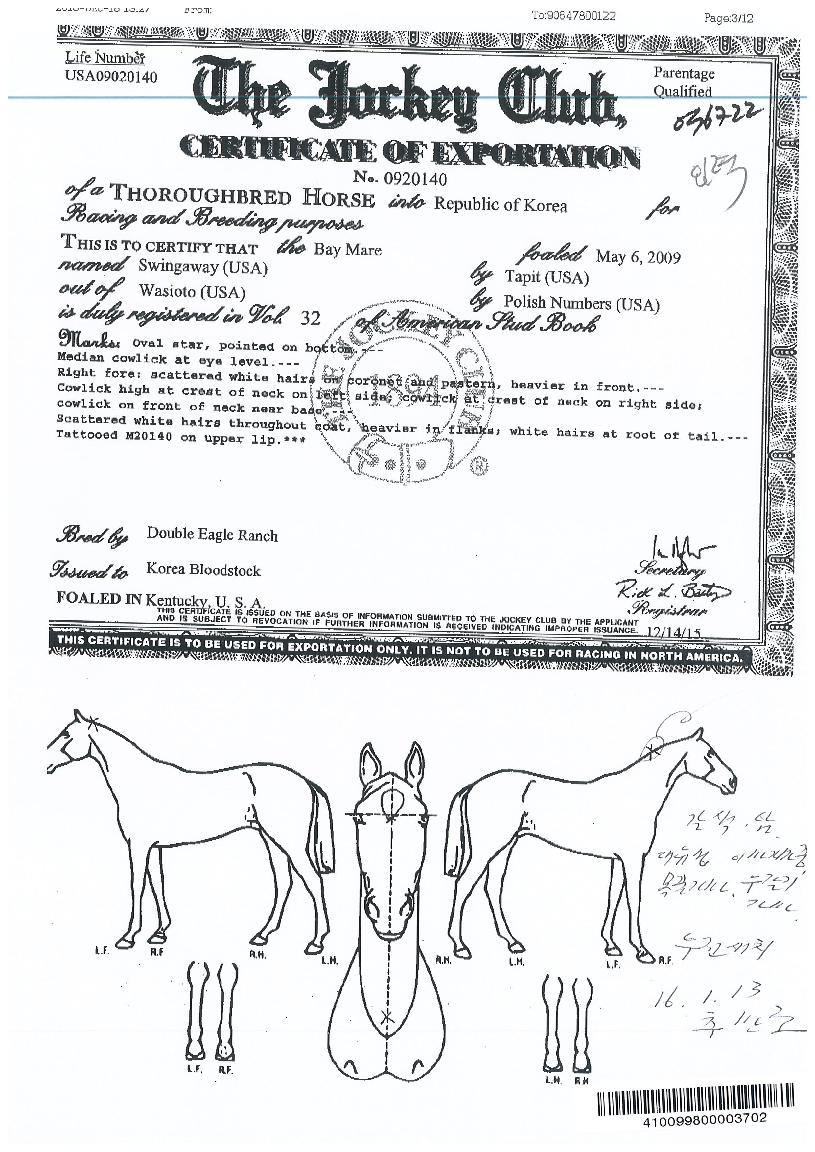 To:90647800122 Page:3/12
Life Number
USA09020140
The Jockey Club,
Parentage
Qualified
036722
CERTIFICATE OF EXPORTATION
No. 0920140
of a THOROUGHBRED HORSE into Republic of Korea for
Racing and Breeding purposes
THIS IS TO CERTIFY THAT the Bay Mare foaled May 6, 2009
named Swingaway (USA) by Tapit (USA)
out of Wasioto (USA) by Polish Numbers (USA)
is duly registered in Vol. 32 of American Stud Book
THE JOCKEY CLUB
1894
®
Marks: Oval star, pointed on bottom.---
Median cowlick at eye level.---
Right fore: scattered white hairs on coronet and pastern, heavier in front.---
Cowlick high at crest of neck on left side; cowlick at crest of neck on right side;
cowlick on front of neck near base.---
Scattered white hairs throughout coat, heavier in flanks; white hairs at root of tail.---
Tattooed M20140 on upper lip.***
Bred by Double Eagle Ranch
Issued to Korea Bloodstock
Secretary
Registrar
FOALED IN Kentucky, U. S. A.
THIS CERTIFICATE IS ISSUED ON THE BASIS OF INFORMATION SUBMITTED TO THE JOCKEY CLUB BY THE APPLICANT
AND IS SUBJECT TO REVOCATION IF FURTHER INFORMATION IS RECEIVED INDICATING IMPROPER ISSUANCE. 12/14/15
THIS CERTIFICATE IS TO BE USED FOR EXPORTATION ONLY. IT IS NOT TO BE USED FOR RACING IN NORTH AMERICA.
L.F. R.F R.H. L.H. R.H. L.H. L.F. R.F.
16. 1. 13
L.F. R.F. L.H. R.H
410099800003702